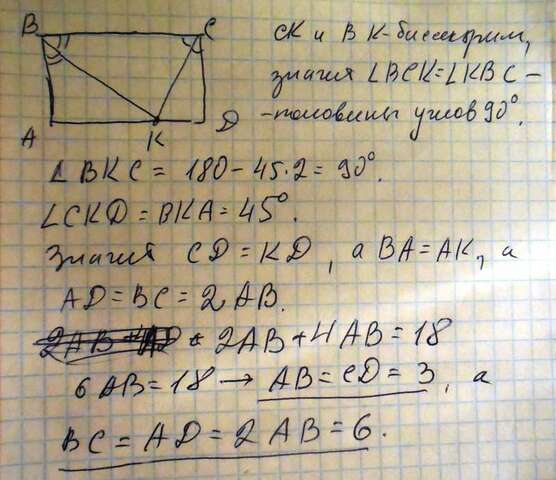 B C
A K D
CK и BK-биссектрим,
значит ∠BCK=∠KBC-
-половины углов 90°.
∠BKC = 180-45·2= 90°.
∠CKD=BKA=45°.
Значит CD=KD, а BA=AK, а
AD=BC=2AB.
2AB+4AB=18
6AB=18→ AB=CD=3, а
BC=AD=2AB=6.